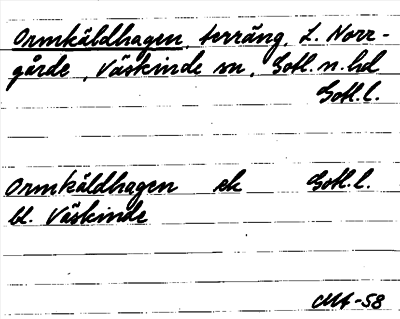 Ormkäldhagen, terräng, L. Norr-
gårde, Väskinde sn, Gotl. n. hd
Gotl. l.
Ormkäldhagen ek Gotl. l.
bl. Väskinde